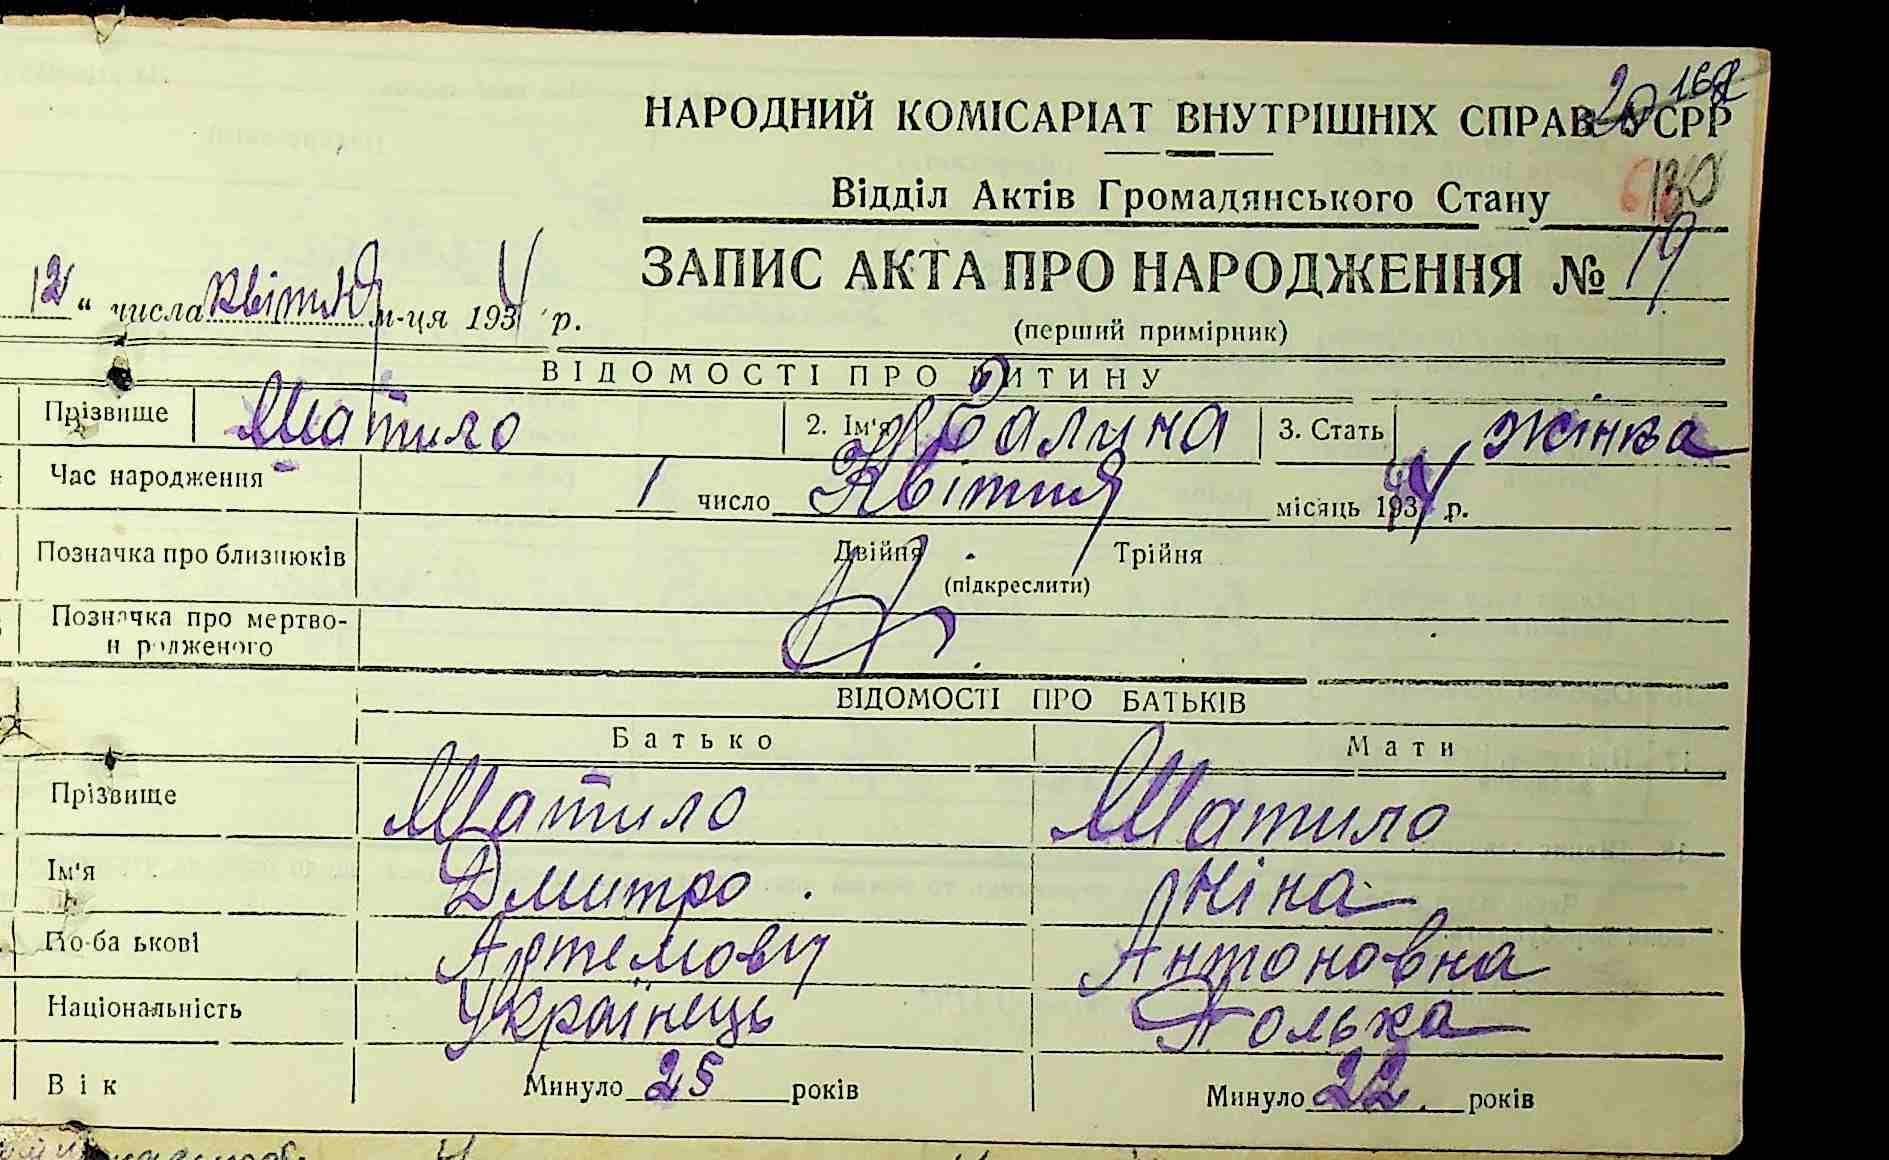 20 168
НАРОДНИЙ КОМІСАРІАТ ВНУТРІШНІХ СПРАВ УСРР
Відділ Актів Громадянського Стану
130
ЗАПИС АКТА ПРО НАРОДЖЕННЯ № 19
12 " числа квітня м-ця 1934 р.
(перший примірник)
ВІДОМОСТІ ПРО ДИТИНУ
Прізвище Шатило 2. Ім'я Галина 3. Стать жінка
Час народження 1 число Квітня місяць 1934 р.
Позначка про близнюків Двійня Трійня
(підкреслити)
Позначка про мертво-
н родженого
ВІДОМОСТІ ПРО БАТЬКІВ
Батько Мати
Прізвище Шатило Шатило
Ім'я Дмитро Ніна
По-ба ькові Артемович Антоновна
Національність Українець Полька
Вік Минуло 25 років Минуло 22 років